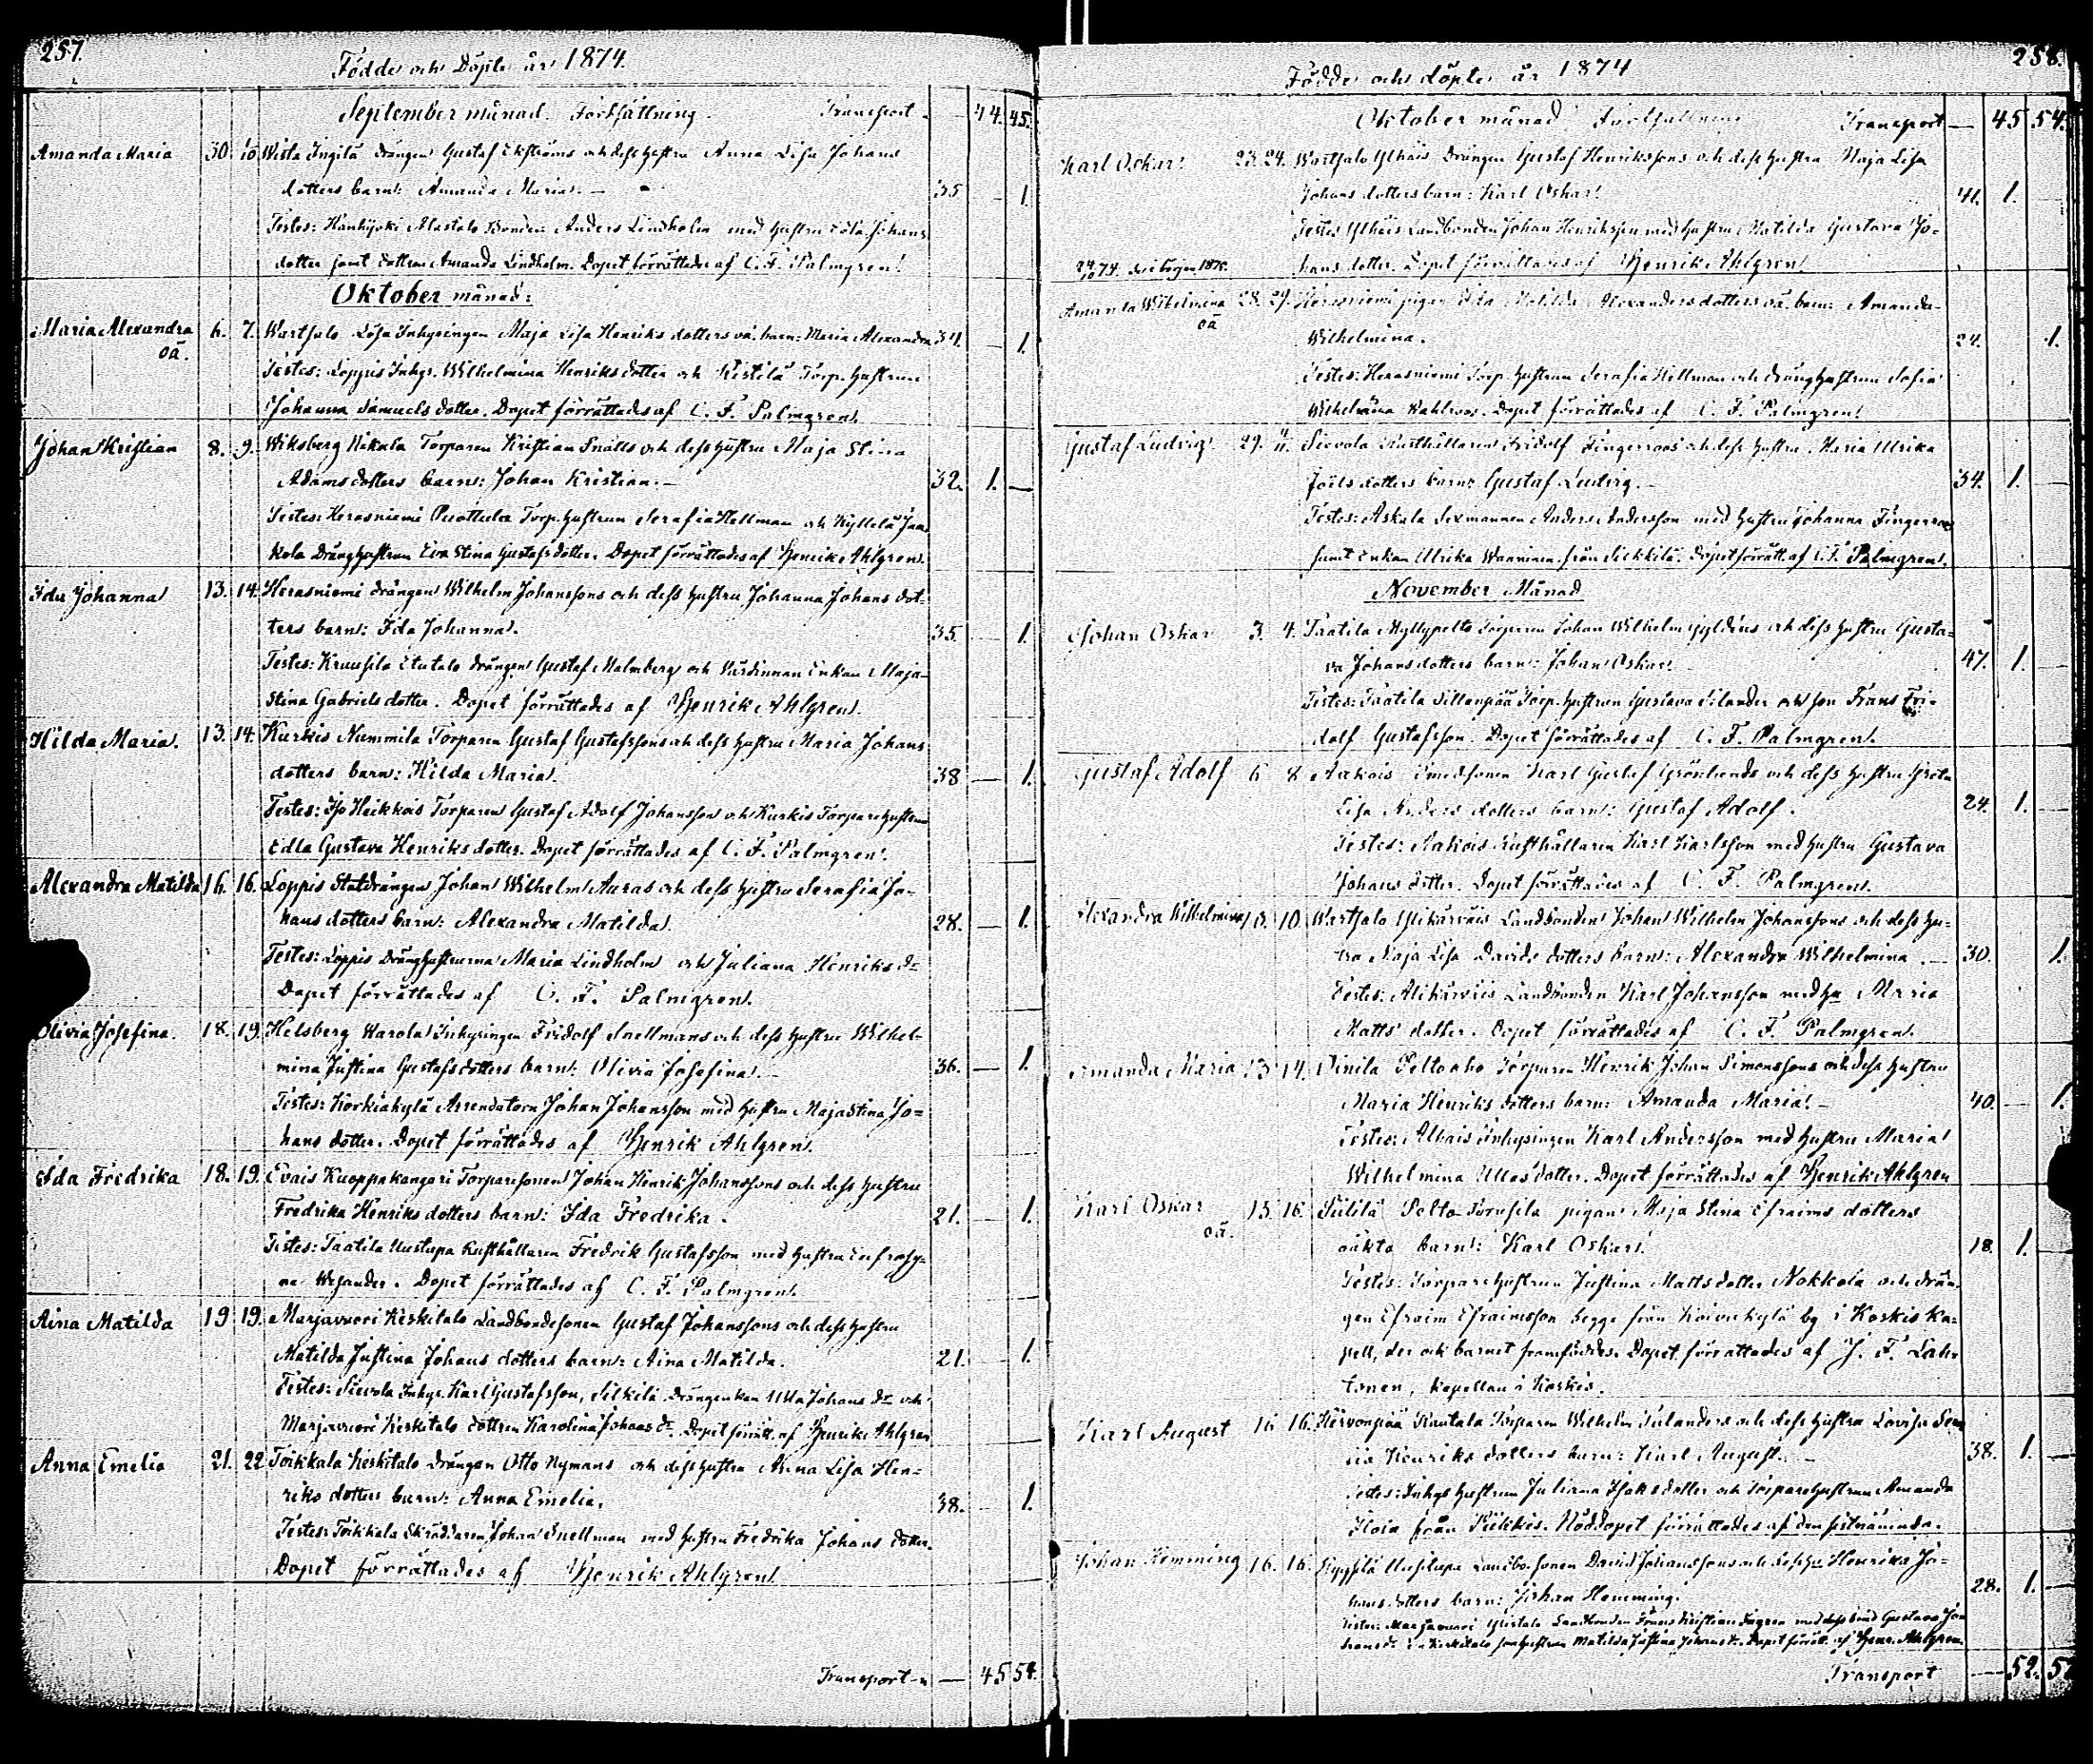 257.
Födde och Döpte år 1874.
September månad. Fortsättning. Transport - 44. 45.
Amanda Maria 30 10 Wista Ingilä Drängen Gustaf Ekströms och dess hustru Anna Lisa Johans
dotters barn: Amanda Maria. 35 1.
Testes: Hanhijoki Alastalo Bonden Anders Lindholm med hustru Johans
dotter samt dottren Amanda Lindholm. Dopet förrättades af C. F. Palmgren.
Oktober månad:
Maria Alexandra 6. 7. Wartsalo Lisa Inhysingen Maja Lisa Henriks dotters oä. barn: Maria Alexandra 34. 1.
oä.
Testes: Loppis Inhys. Wilhelmina Henriks dotter och Kestilä Torp. hustrun
Johanna Samuels dotter. Dopet förrättades af C. F. Palmgren.
Johan Kristian 8. 9. Wiksberg Nikula Torparen Kristian Snälls och dess hustru Maja Stina
Adams dotters barn: Johan Kristian. 32. 1.
Testes: Herasniemi Torp. hustrun Serafia Hellman och Kyllelä Jaa
kola Dränghustrun Eva Stina Gustafs dotter. Dopet förrättades af Henrik Ahlgren.
Ida Johanna 13. 14. Herasniemi drängen Wilhelm Johanssons och dess hustru Johanna Johans dot=
ters barn: Ida Johanna. 35. 1.
Testes: Kruusila Etutalo drängen Gustaf Malmberg och Värdinnan Enkan Maja
Stina Gabriels dotter. Dopet förrättades af Henrik Ahlgren.
Hilda Maria. 13. 14. Kurkis Nummila Torparen Gustaf Gustafssons och dess hustru Maria Johans
dotters barn: Hilda Maria. 38 1.
Testes: Iso Heikkois Torparen Gustaf Adolf Johansson och Kurkis Torparehustrun
Edla Gustava Henriks dotter. Dopet förrättades af C. F. Palmgren.
Alexandra Matilda 16. 16. Loppis Statdrängen Johan Wilhelm Auras och dess hustru Serafia Jo-
hans dotters barn: Alexandra Matilda. 28. 1.
Testes: Loppis Dränghustrurna Maria Lindholm och Juliana Henriks dr
Dopet förrättades af C. F. Palmgren.
Olivia Josefina. 18. 19. Helsberg Harola Inhysingen Fridolf Snellmans och dess hustru Wilhel-
mina Justina Gustafs dotters barn: Olivia Josefina. 36. 1.
Testes: Korkiakylä Arrendatorn Johan Johansson med hustru Maja Stina Jo=
hans dotter. Dopet förrättades af Henrik Ahlgren.
Ida Fredrika 18. 19. Evais Kuoppakangari Torparesonen Johan Henrik Johanssons och dess hustru
Fredrika Henriks dotters barn: Ida Fredrika. 21. 1.
Testes: Taatila Uustupa Rusthållaren Fredrik Gustafsson med hustru Eufrosy=
na Wesander. Dopet förrättades af C. F. Palmgren.
Aina Matilda 19 19. Marjavuori Keskitalo Landbondesonen Gustaf Johanssons och dess hustru
Matilda Justina Johans dotters barn: Aina Matilda. 21. 1.
Testes: Sievola Inhys. Karl Gustafsson, Silkilä Drängenkan Ulla Johans dr och
Marjavuori Keskitalo dottren Karolina Johans dr. Dopet förrätt. af Henrik Ahlgren
Anna Emelia 21. 22 Toikkala Keskitalo drängen Otto Nymans och dess hustru Anna Lisa Hen=
riks dotters barn: Anna Emelia. 38. 1.
Testes: Toikkala Skräddaren Johan Snellman med hustru Fredrika Johans dotter.
Dopet förrättades af Henrik Ahlgren
Transport - 45 54.
258.
Födde och döpte år 1874
Oktober månad. Fortsättning Transport 45 54.
Karl Oskar 23. 24. Wartsalo Ylhäis Drängen Gustaf Henrikssons och dess hustru Maja Lisa
Johans dotters barn: Karl Oskar. 41. 1.
Testes Ylhäis Landbonden Johan Henriksson med hustru Matilda Gustava Jo=
hans dotter. Dopet förrättades af Henrik Ahlgren
Amanda Wilhelmina 28. 29. Herasniemi pigan Matilda Alexanders dotters oä. barn: Amanda
oä
Wilhelmina. 24. 1.
Testes: Herasniemi Torp. hustrun Serafia Hellman och dränghustrun Sofia
Wilhelmina Wahlroos. Dopet förrättades af C. F. Palmgren.
Gustaf Ludvig 29. Sievola Rusthållaren Fridolf Fingerroos och dess hustru Maria Ulrika
Joels dotters barn: Gustaf Ludvig. 34. 1.
Testes: Askala Sexmannen Anders Andersson med hustru Johanna Fingerroos
samt Enkan Ulrika Wanninen från Silkkilä. Dopet förrätt. af C. F. Palmgren.
November Månad
Johan Oskar 3. 4. Taatila Myllypelto Torparen Johan Wilhelm Gyldéns och dess hustru Gusta=
va Johans dotters barn: Johan Oskar. 47. 1.
Testes: Taatila Sillanpää Torp. hustrun Gustava Silander och son Frans Fri-
dolf Gustafsson. Dopet förrättades af C. F. Palmgren.
Gustaf Adolf 6 8 Rakois Smedsonen Karl Gustaf Grönlunds och dess hustru Greta
Lisa Anders dotters barn: Gustaf Adolf. 24. 1.
Testes: Rakois Rusthållaren Karl Karlsson med hustru Gustava
Johans dotter. Dopet förrättades af C. F. Palmgren.
Alexandra Wilhelmina 10. 10. Wartsalo Landbonden Johan Wilhelm Johanssons och dess hu-
stru Maja Lisa Davids dotters barn: Alexandra Wilhelmina. 30. 1.
Testes: Landbonden Karl Johansson med hu Maria
Matts dotter. Dopet förrättades af C. F. Palmgren.
Amanda Maria 13 14. Vinila Peltoaho Torparen Henrik Johan Simonssons och dess hustru
Maria Henriks dotters barn: Amanda Maria. 40. 1.
Testes: Inhysingen Karl Andersson med hustru Maria
Wilhelmina dotter. Dopet förrättades af Henrik Ahlgren
Karl Oskar 15 16. Pelto pigan Maja Stina Efraims dotters
oä.
oäkta barn: Karl Oskar. 18. 1.
Testes: Torparehustrun Justina Matts dotter Nokkola och drän
gen Efraim Efraimsson begge från Koivukylä by i Koskis Ka=
pell, der ock barnet framföddes. Dopet förrättades af J. F. Lah
tonen, Kapellan i Koskis.
Karl August 16 16. Torparen Wilhelm och dess hustru Lovisa
Henriks dotters barn: Karl August. 38. 1.
Testes: Inhys hustrun Juliana Isaks dotter och Torparehustrun Amanda
från Piikkis. Nöddopet förrättades af den sistnämnda.
Johan Hemming 16. 16. Landbo sonen David Johanssons och dess hu Henrika Jo=
hans dotters barn: Johan Hemming. 28. 1.
Testes: Marjavuori Landbonden Frans Kristian med
Keskitalo Matilda Justina Johans dr. Dopet förrätt. af Henr. Ahlgren
Transport 52. 5